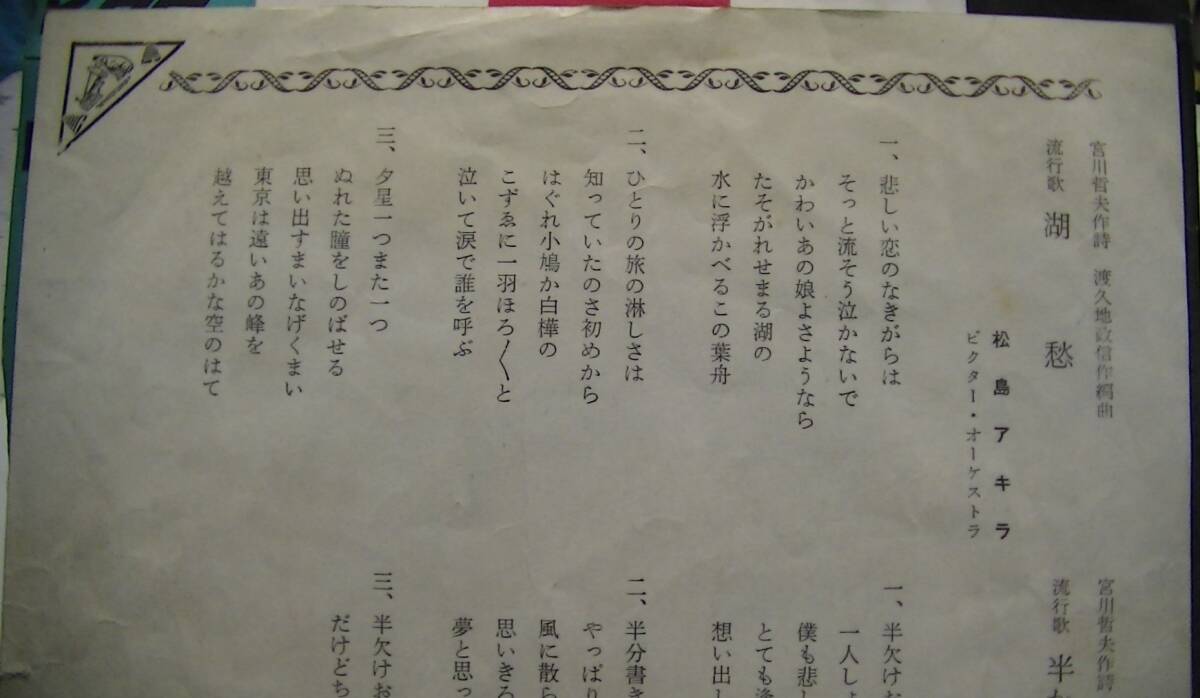 宮川哲夫作詩　渡久地政信作編曲
流行歌　湖愁
松島アキラ
ビクター・オーケストラ
一、悲しい恋のなきがらは
そっと流そう泣かないで
かわいあの娘よさようなら
たそがれせまる湖の
水に浮かべるこの葉舟
二、ひとりの旅の淋しさは
知っていたのさ初めから
はぐれ小鳩か白樺の
こずゑに一羽ほろ〳〵と
泣いて涙で誰を呼ぶ
三、夕星一つまた一つ
ぬれた瞳をしのばせる
思い出すまいなげくまい
東京は遠いあの峰を
越えてはるかな空のはて
宮川哲夫作詩
流行歌　半
一、半欠けお
一人しょ
僕も悲し
とても逢
想い出し
二、半分書き
やっぱり
風に散ら
思いきろ
夢と思っ
三、半欠けお
だけどち